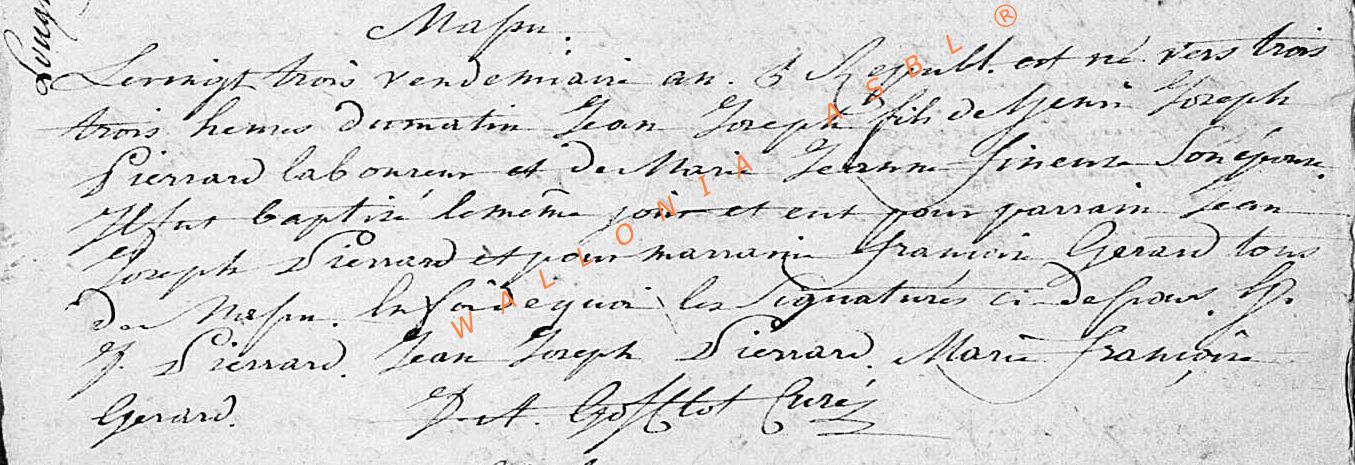 Massu.
Le vingt trois vendemiaire an. 6 Republ. est né vers trois
trois heures du matin Jean Joseph fils de Henri Joseph
Pierrard laboureur et de Marie Jeanne fineuse Son épouse.
Il fut baptisé le même jour et eut pour parrain Jean
Joseph Pierrard et pour marraine françoise Gerard tous
de Massu. En foi de quoi les Signatures ci-dessous. H.
J. Pierrard. Jean Joseph Pierrard. Marie françoise
Gerard. Curé
WALLONIA ASBL ®